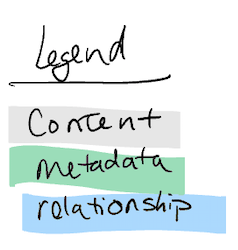 Legend
Content
metadata
relationship